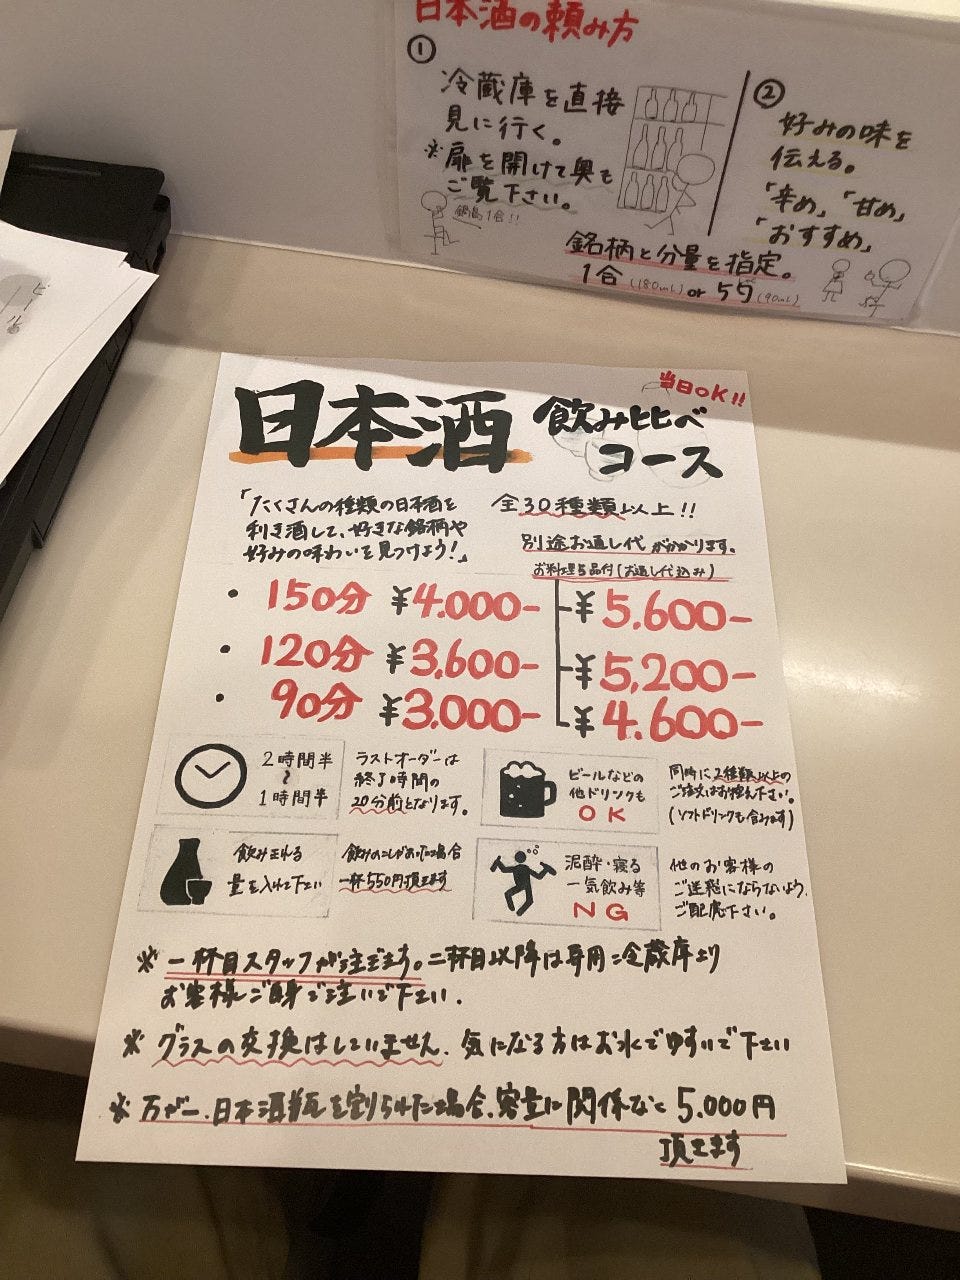 日本酒の頼み方
①
冷蔵庫を直接
見に行く。
※扉を開けて奥も
ご覧下さい。
鍋島1合!!
②
好みの味を
伝える。
「辛め」「甘め」
「おすすめ」
銘柄と分量を指定。
1合(180ml) or 5勺(90ml)
当日OK!!
日本酒 飲み比べ
コース
「たくさんの種類の日本酒を
利き酒して、好きな銘柄や
好みの味わいを見つけよう!」
全30種類以上!!
別途お通し代がかかります。
お料理5品付(お通し代込み)
・150分 ¥4.000- ¥5.600-
・120分 ¥3,600- ¥5,200-
・90分 ¥3.000- ¥4.600-
2時間半
~
1時間半
ラストオーダーは
終了時間の
20分前となります。
ビールなどの
他ドリンクも
OK
同時に2種類以上の
ご注文はお控え下さい。
(ソフトドリンクも含みます)
飲みきれる
量を入れて下さい
飲みのこしがあった場合
一杯550円頂きます
泥酔・寝る
一気飲み等
NG
他のお客様の
ご迷惑にならないよう、
ご配慮下さい。
※一杯目スタッフが注ぎます。二杯目以降は専用冷蔵庫より
お客様ご自身で注いで下さい.
※グラスの交換はしていません、気になる方はお水でゆすいで下さい
※万が一、日本酒瓶を割られた場合、容量に関係なく5.000円
頂きます